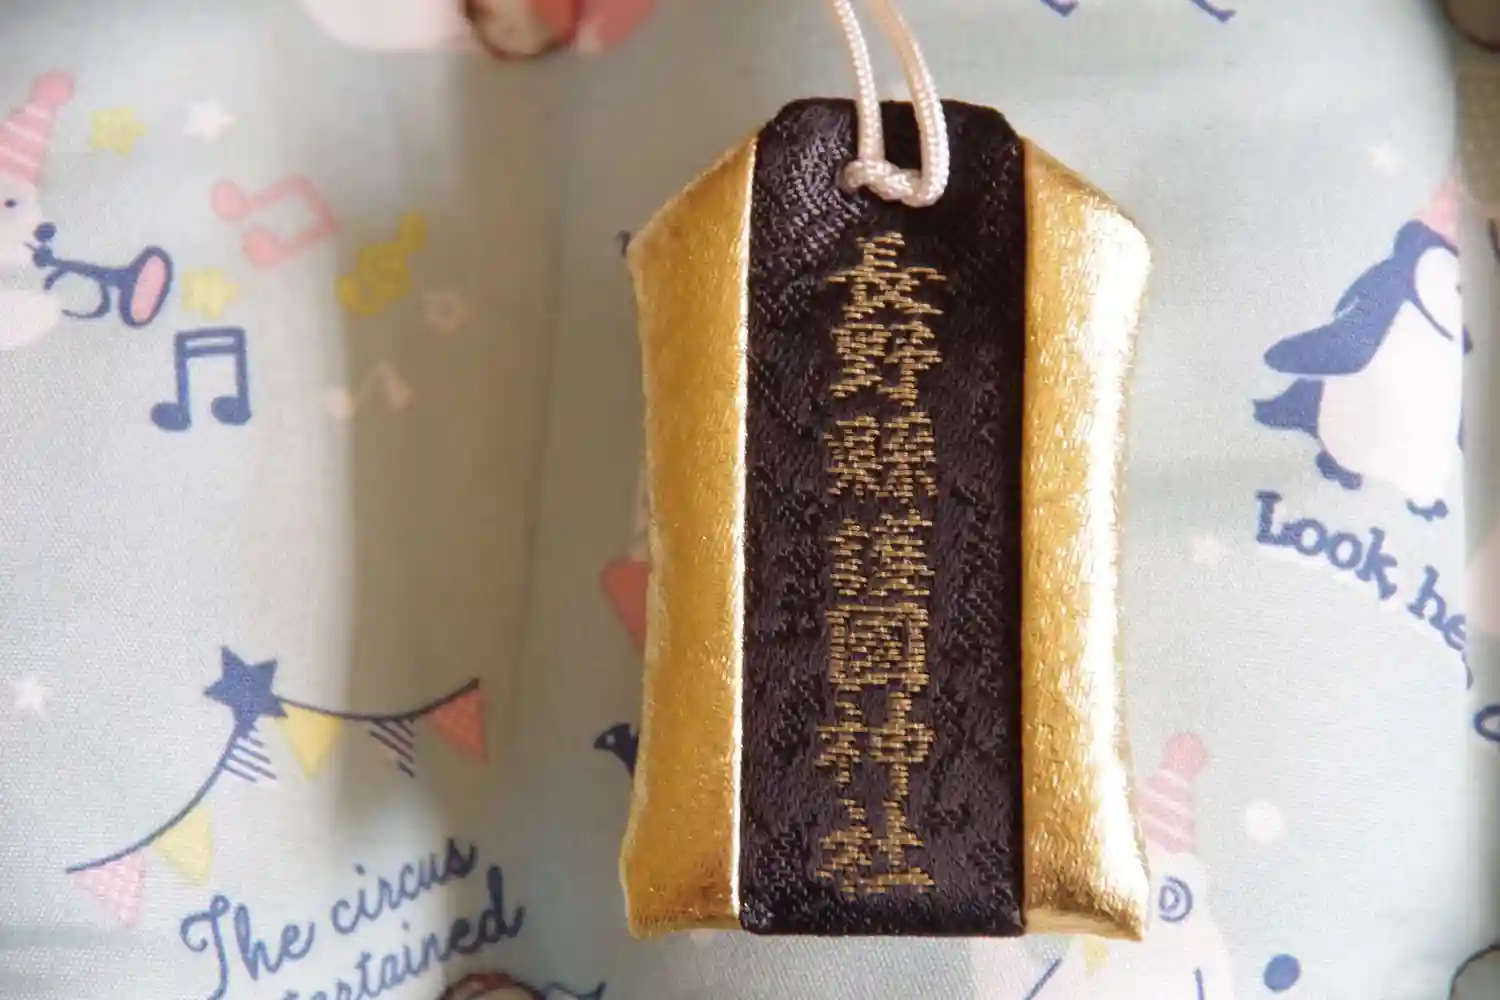 長野縣護國神社
Look, he
The circus
ertained